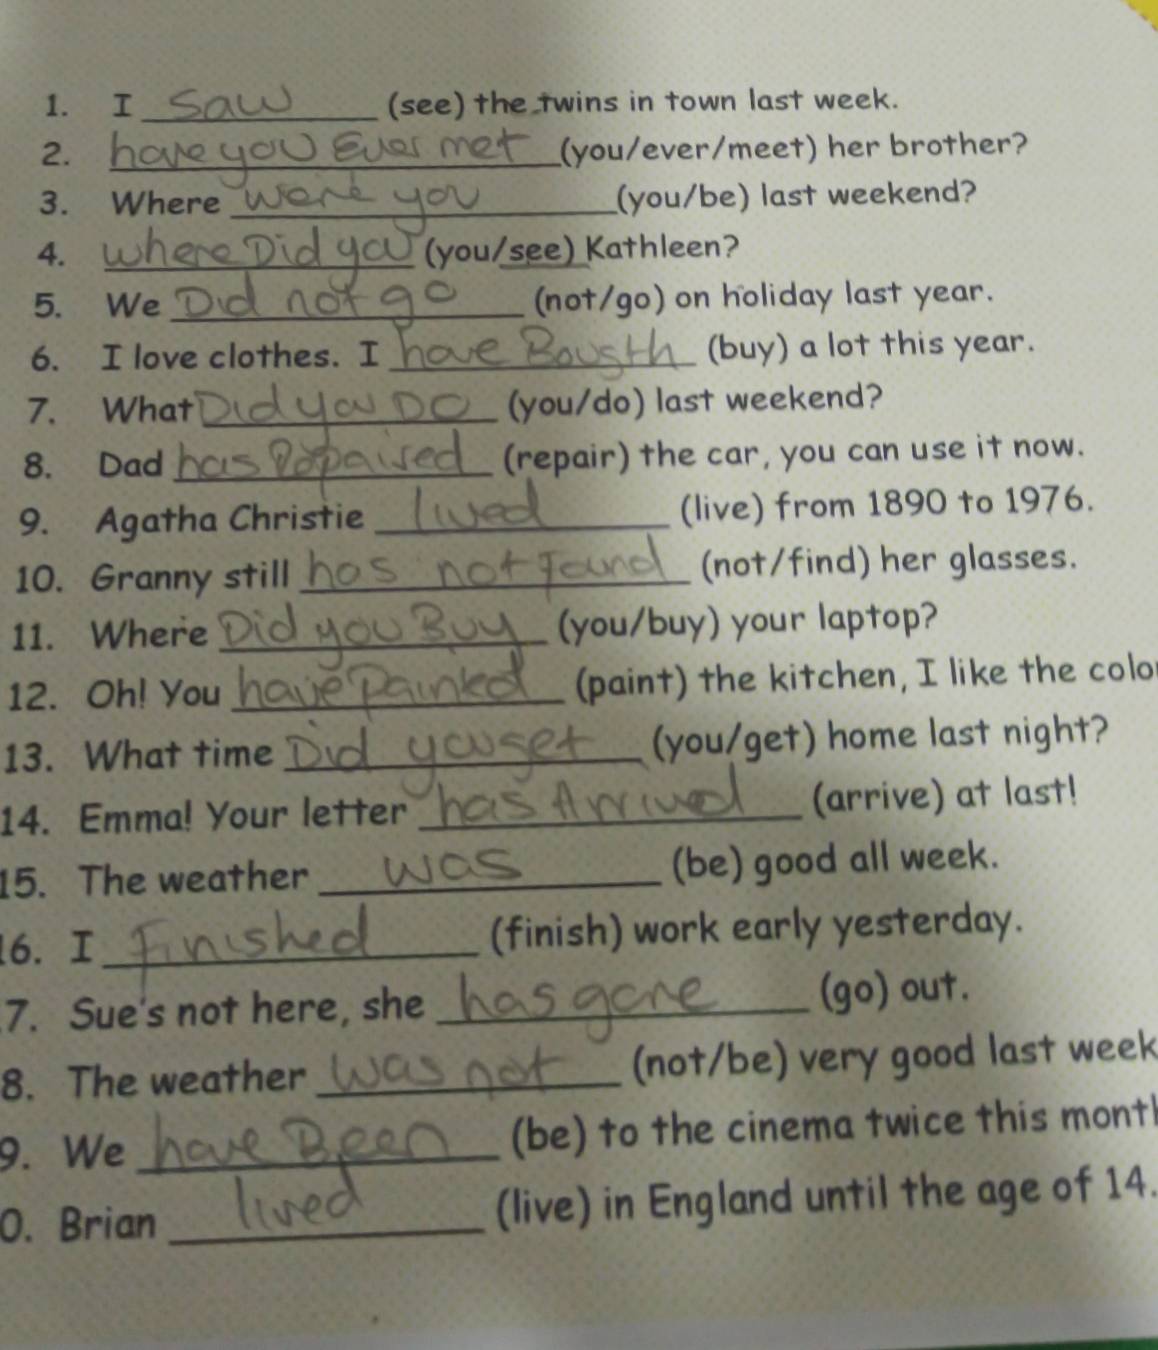 1. I Saw (see) the twins in town last week.
2. have you Ever met (you/ever/meet) her brother?
3. Where were you (you/be) last weekend?
4. where Did you (you/see) Kathleen?
5. We Did not go (not/go) on holiday last year.
6. I love clothes. I have Bougth (buy) a lot this year.
7. What Did you DO (you/do) last weekend?
8. Dad has Repaired (repair) the car, you can use it now.
9. Agatha Christie lived (live) from 1890 to 1976.
10. Granny still has not Found (not/find) her glasses.
11. Where Did you Buy (you/buy) your laptop?
12. Oh! You have painted (paint) the kitchen, I like the colo
13. What time Did you get (you/get) home last night?
14. Emma! Your letter has Arrived (arrive) at last!
15. The weather was (be) good all week.
16. I Finished (finish) work early yesterday.
7. Sue's not here, she has gone (go) out.
8. The weather was not (not/be) very good last week
9. We have Been (be) to the cinema twice this month
0. Brian lived (live) in England until the age of 14.